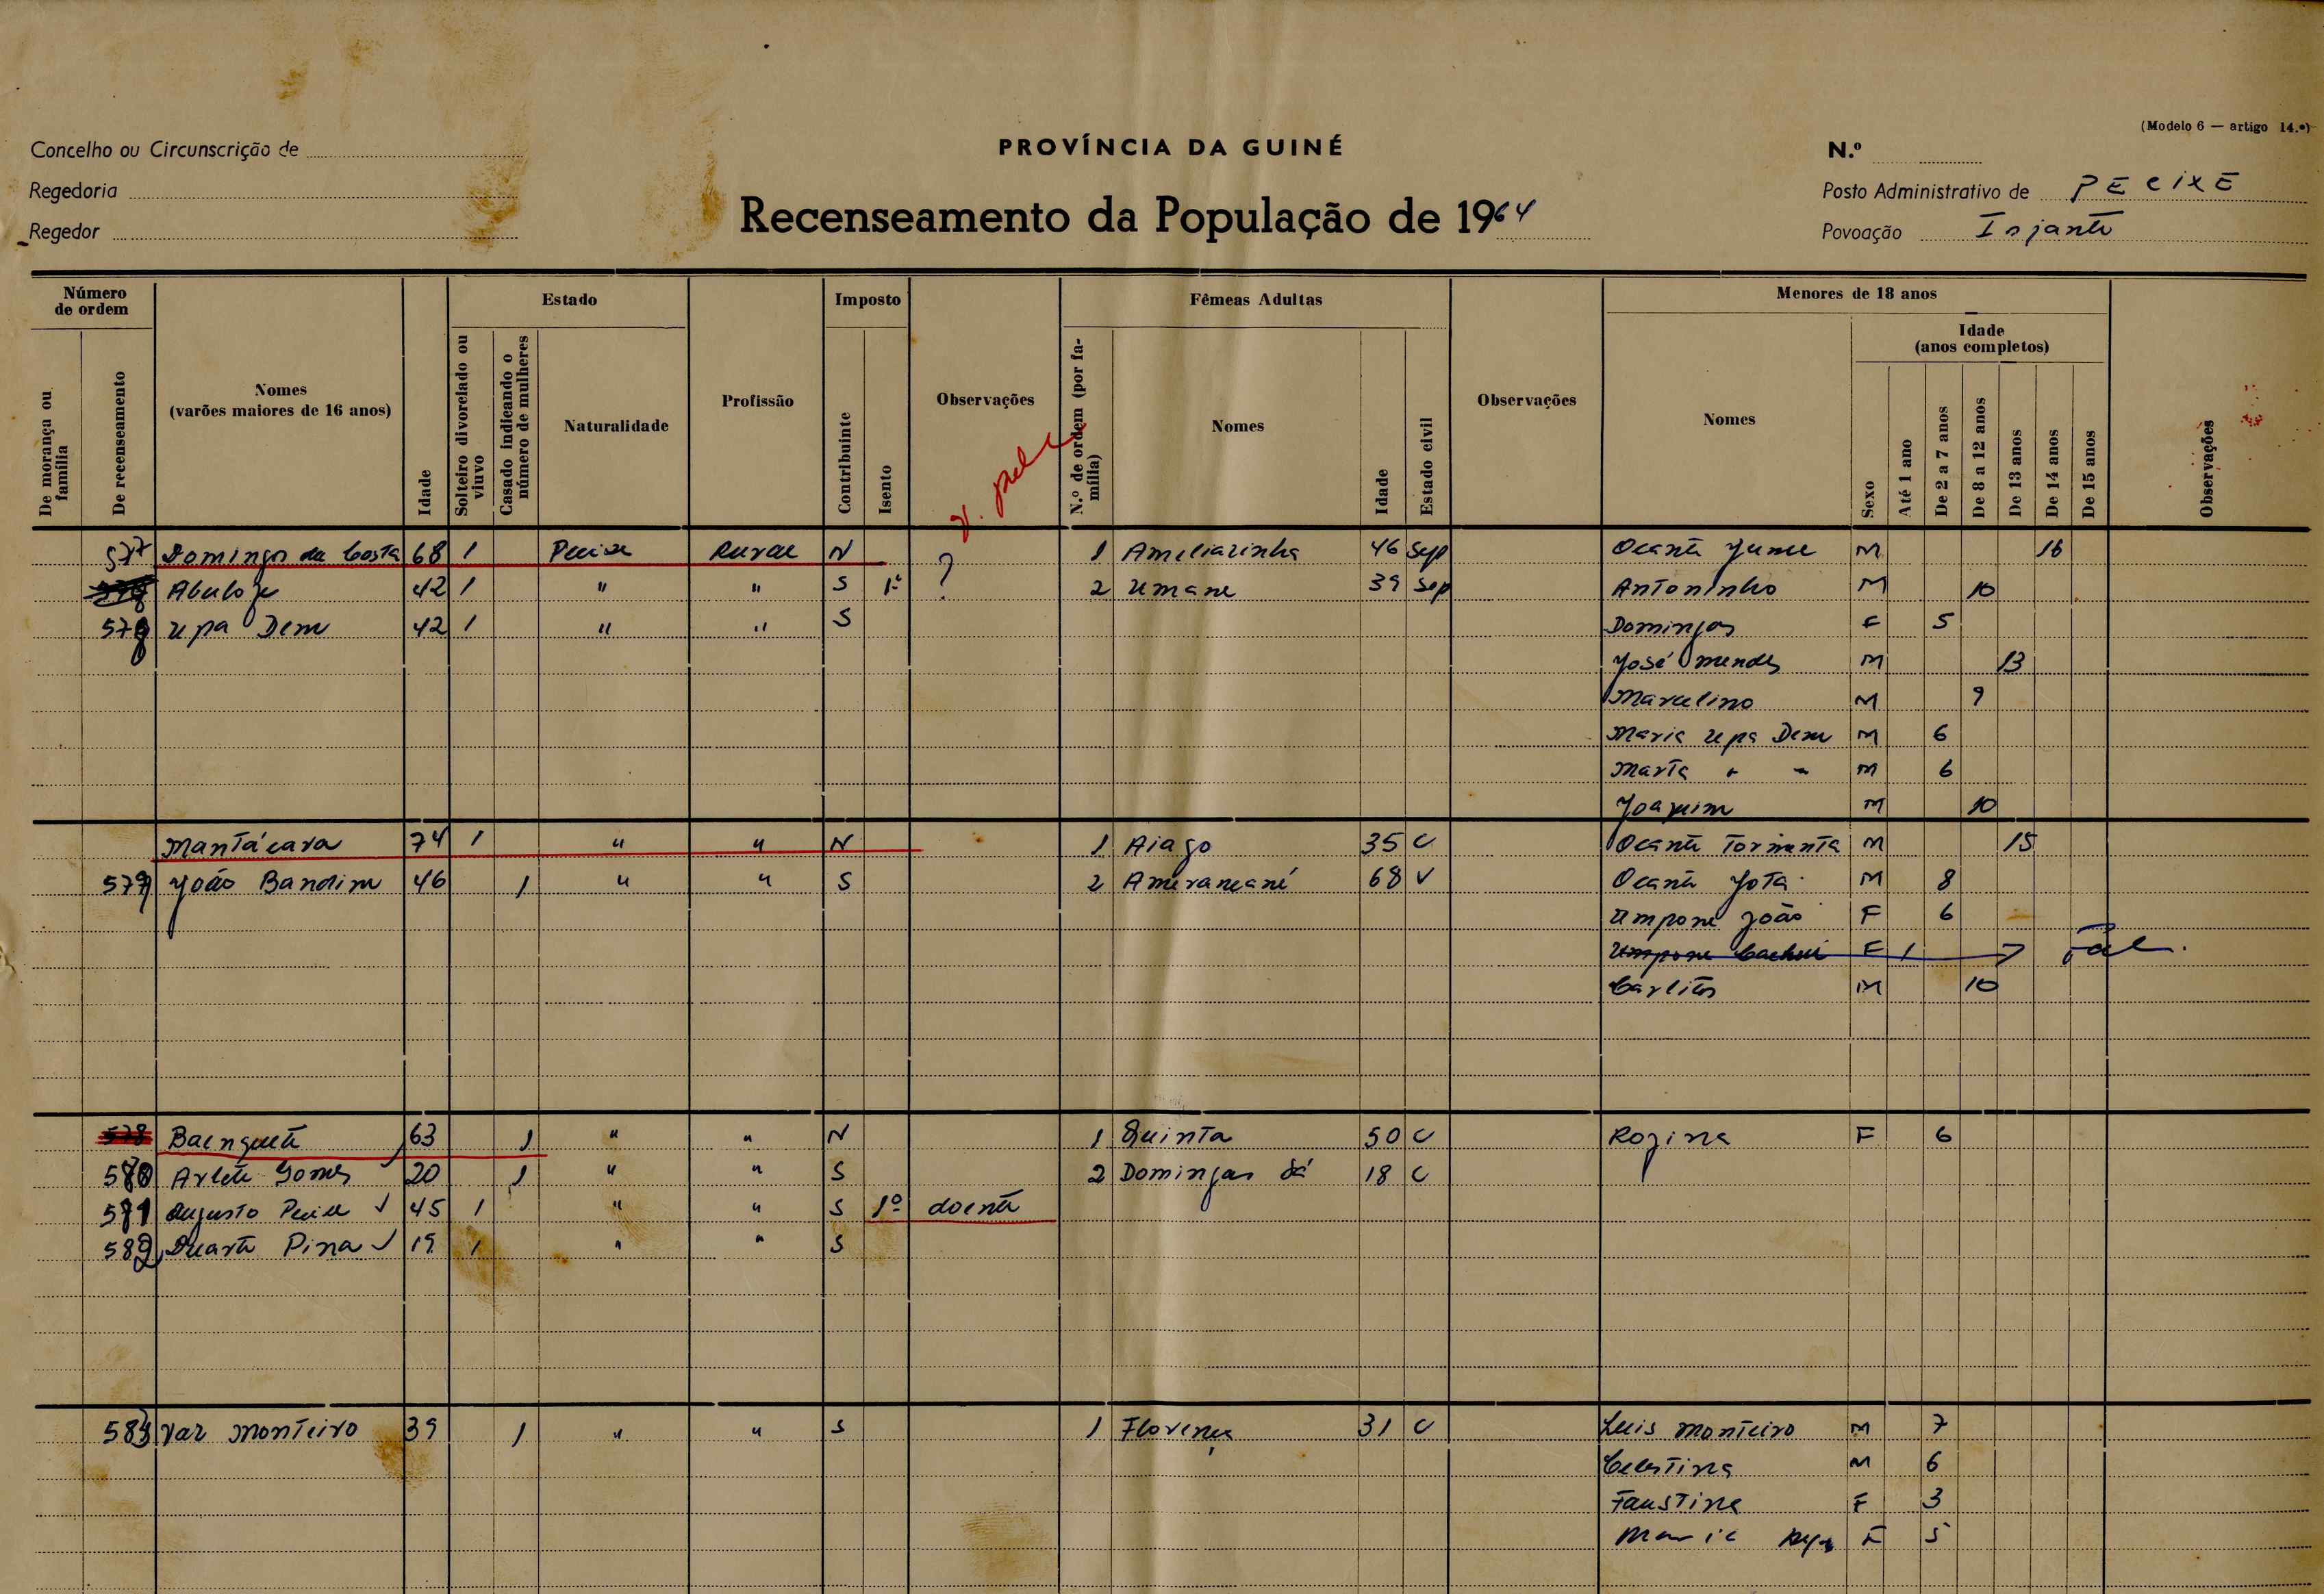 (Modelo 6 — artigo 14.º)
Concelho ou Circunscrição de
PROVÍNCIA DA GUINÉ
N.º
Regedoria
Posto Administrativo de PECIXE
Regedor
Recenseamento da População de 1964
Povoação Injante
Número de ordem
De morança ou família
De recenseamento
Nomes (varões maiores de 16 anos)
Idade
Estado
Solteiro divorciado ou viuvo
Casado indicando o número de mulheres
Naturalidade
Profissão
Imposto
Contribuinte
Isento
Observações
Fêmeas Adultas
N.º de ordem (por família)
Nomes
Idade
Estado civil
Observações
Menores de 18 anos
Nomes
Sexo
Idade (anos completos)
Até 1 ano
De 2 a 7 anos
De 8 a 12 anos
De 13 anos
De 14 anos
De 15 anos
Observações
577 Domingos da Costa 68 1 Pecixe Rural N ? 1 Ameliazinha 46 Sep Ocante M 16
42 1 " " S 1º 2 Umane 39 Sep Antoninho M 10
578 Upa Dem 42 1 " " S Domingas F 5
José Mendes M 13
Marcelino M 9
Maria Upa Dem M 6
Marta " " M 6
Joaquim M 10
Mantácara 74 1 " " N 1 Aiago 35 C Ocante Tormenta M 15
579 João Bandim 46 1 " " S 2 68 V Ocante Jota M 8
Umpone João F 6
Umpone F 1 Fal.
Carlitos M 10
578 Baenquete 63 1 " " N 1 Quinta 50 C Rozina F 6
580 Arlete Gomes 20 1 " " S 2 Domingas Sá 18 C
581 Augusto Pecixe ✓ 45 1 " " S 1º doente
582 Duarte Pina ✓ 19 1 " " S
583 Vaz Monteiro 39 1 " " S 1 Florença 31 C Luis Monteiro M 7
Celestina M 6
Faustina F 3
Maria F 5